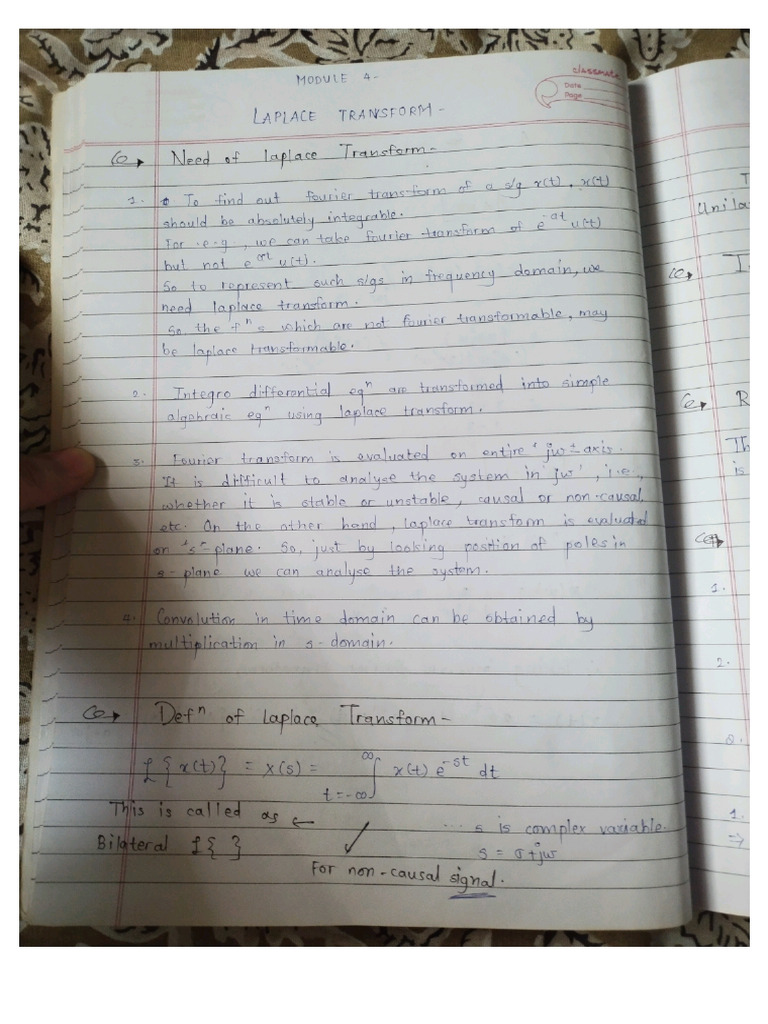 MODULE 4-
classmate
Date
Page
LAPLACE TRANSFORM-
Need of laplace Transform-
1. To find out fourier transform of a s/g x(t), x(t)
should be absolutely integrable.
For e.g, we can take fourier transform of e^-at u(t)
but not e^at u(t).
So to represent such s/gs in frequency domain, we
need laplace transform.
So, the fⁿs which are not fourier transformable, may
be laplace transformable.
2. Integro differential eqⁿ are transformed into simple
algebraic eqⁿ using laplace transform.
3. Fourier transform is evaluated on entire 'jω'-axis.
It is difficult to analyse the system in 'jω', i.e.,
whether it is stable or unstable, causal or non-causal,
etc. On the other hand, laplace transform is evaluated
on 's'-plane. So, just by looking position of poles in
s-plane we can analyse the system.
4. Convolution in time domain can be obtained by
multiplication in s-domain.
Defⁿ of Laplace Transform-
£{x(t)} = X(s) = ∫_{t=-∞}^{∞} x(t) e^-st dt
This is called as ←
... s is complex variable.
Bilateral £{ }
s = σ+jω
For non-causal signal.
Unila
I
R
Th
is
1.
2.
2.
1.
⇒